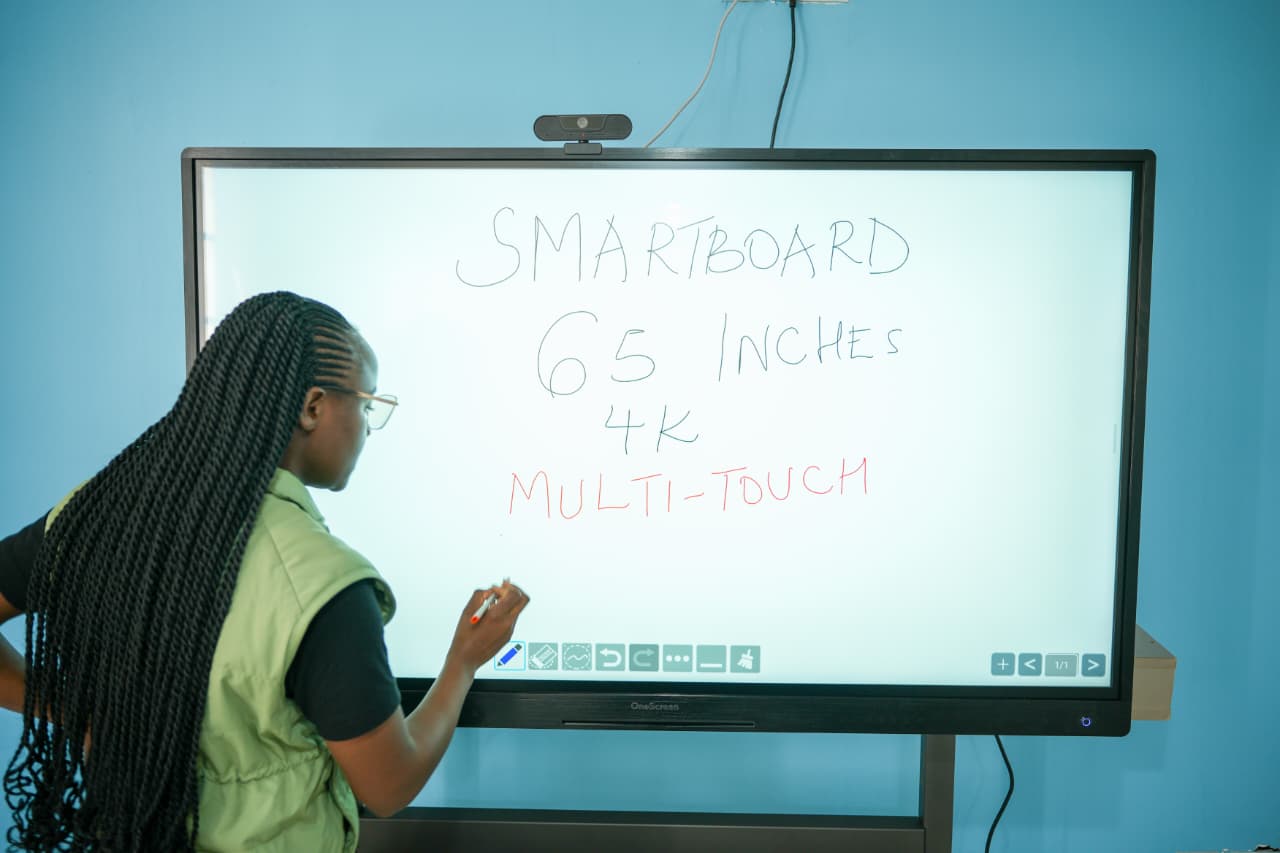 SMARTBOARD
65 INCHES
4K
MULTI-TOUCH
1/1
OneScreen